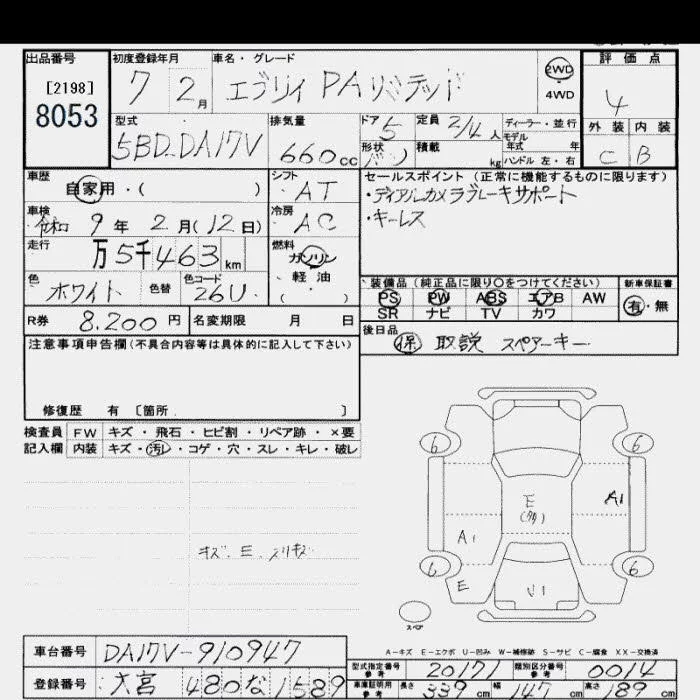 出品番号 初度登録年月 車名・グレード 2WD 評価点
[2198] 7 2月 エブリイ PAリミテッド 4WD 4
8053 型式 排気量 ドア 5 定員 2/4人 ディーラー・並行 外装 内装
モデル年式 年
5BD-DA17V 660cc 形状 バン 積載 kg ハンドル 左・右 C B
車歴 自家用・( ) シフト AT セールスポイント (正常に機能するものに限ります)
・デュアルカメラブレーキサポート
車検 令和 9年 2月(12日) 冷房 AC ・キーレス
走行 万5千463km 燃料 ガソリン
軽油
( )
色 ホワイト 色替 色コード 26U 装備品 (純正品に限り○をつけてください) 新車保証書
PS PW ABS エアB AW 有・無
SR ナビ TV カワ
R券 8.200円 名変期限 月 日 後日品 保 取説 スペアーキー
注意事項申告欄(不具合内容等は具体的に記入して下さい)
修復歴 有 〔箇所 〕
検査員 FW キズ・飛石・ヒビ割・リペア跡・×要
記入欄 内装 キズ・汚レ・コゲ・穴・スレ・キレ・破レ
キズ、E、スリキズ
6 6
E A1
A1
6 6
E U1
スペア
A-キズ E-エクボ U-凹み W-補修跡 S-サビ C-腐食 XX-交換済
車台番号 DA17V-910947
型式指定番号 参考 20171 類別区分番号 参考 0014
登録番号 大宮 480 な 1589
車庫証明用 参考 長さ 339cm 幅 147cm 高さ 189cm